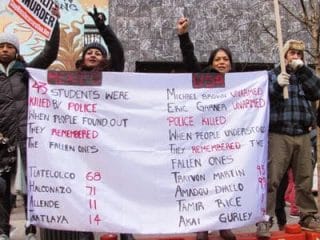 MURDER!
43 STUDENTS WERE
KILLED BY POLICE
WHEN PEOPLE FOUND OUT
THEY REMEMBERED
THE FALLEN ONES
TLATELOLCO 68
HALCONAZO 71
ALLENDE 11
TLATLAYA 14
MICHAEL BROWN UNARMED
ERIC GARNER UNARMED
POLICE KILLED
WHEN PEOPLE UNDERSTOOD
THEY REMEMBERED THE
FALLEN ONES
TRAYVON MARTIN
AMADOU DIALLO
TAMIR RICE
AKAI GURLEY